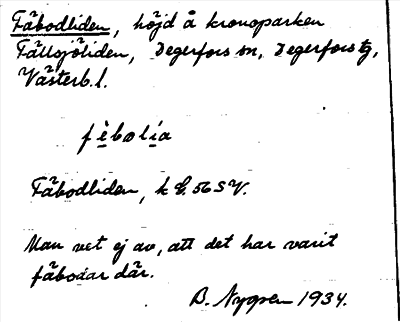 Fäbodliden, höjd å kronoparken
Fällsjöliden, Degerfors sn, Degerfors tg,
Västerb. l.
fèbolia
Fäbodliden, k bl. 56 SV.
Man vet ej av, att det har varit
fäbodar där.
B. Nygren 1934.